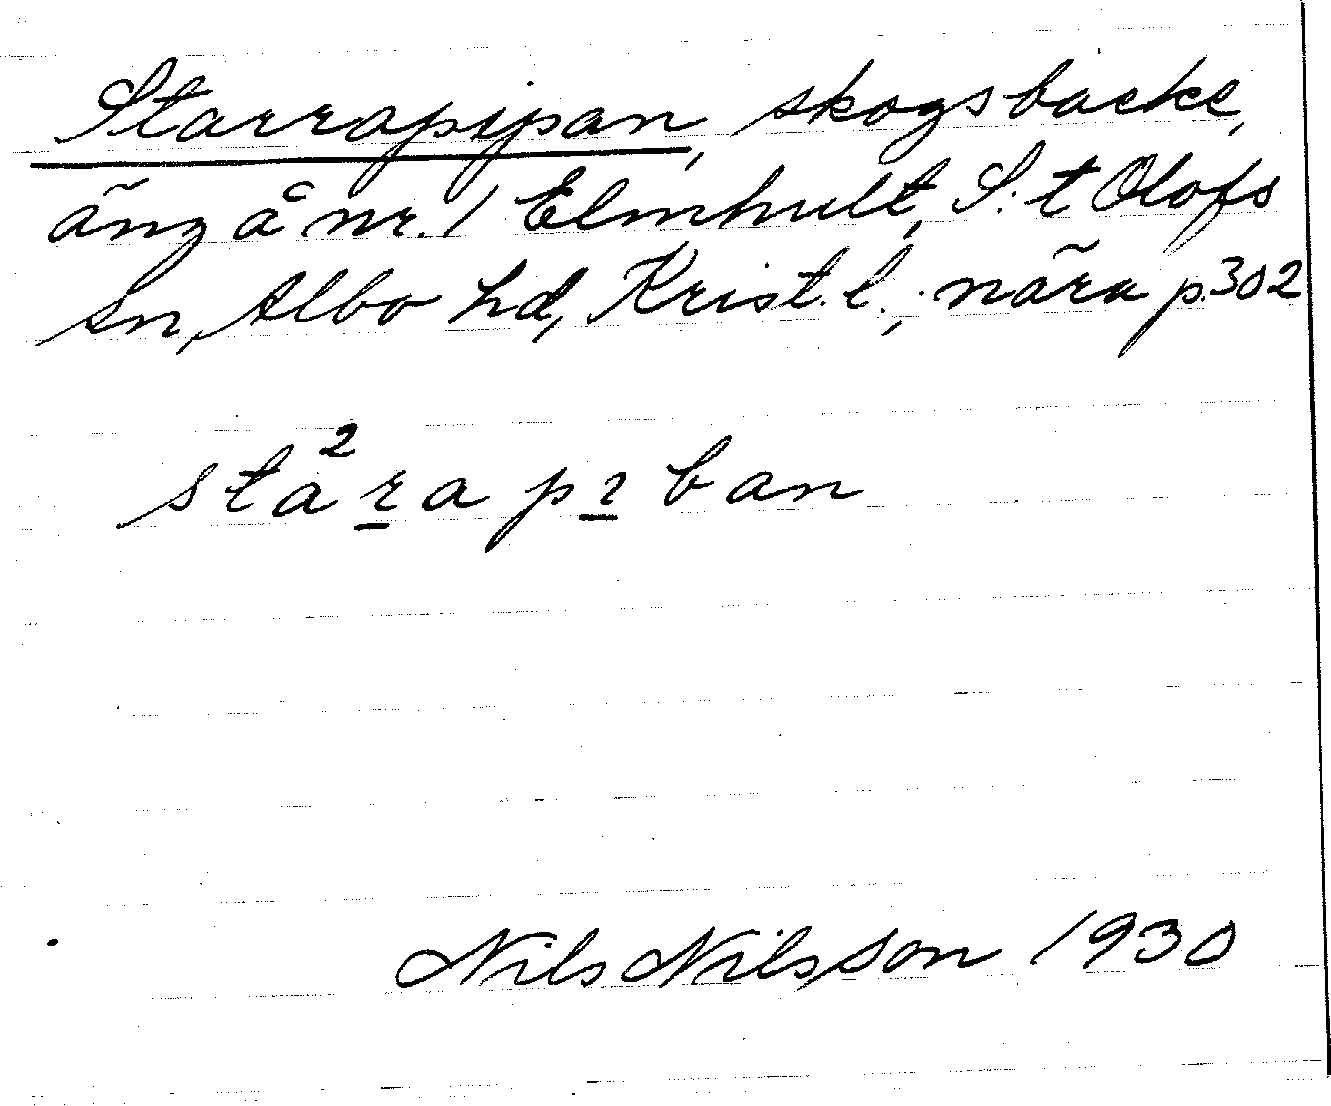 Starrapipan, skogsbacke,
äng å nr. 1 Elmhult, S:t Olofs
sn, Albo hd, Krist. l.; nära p.302
sta²rapıban
Nils Nilsson 1930